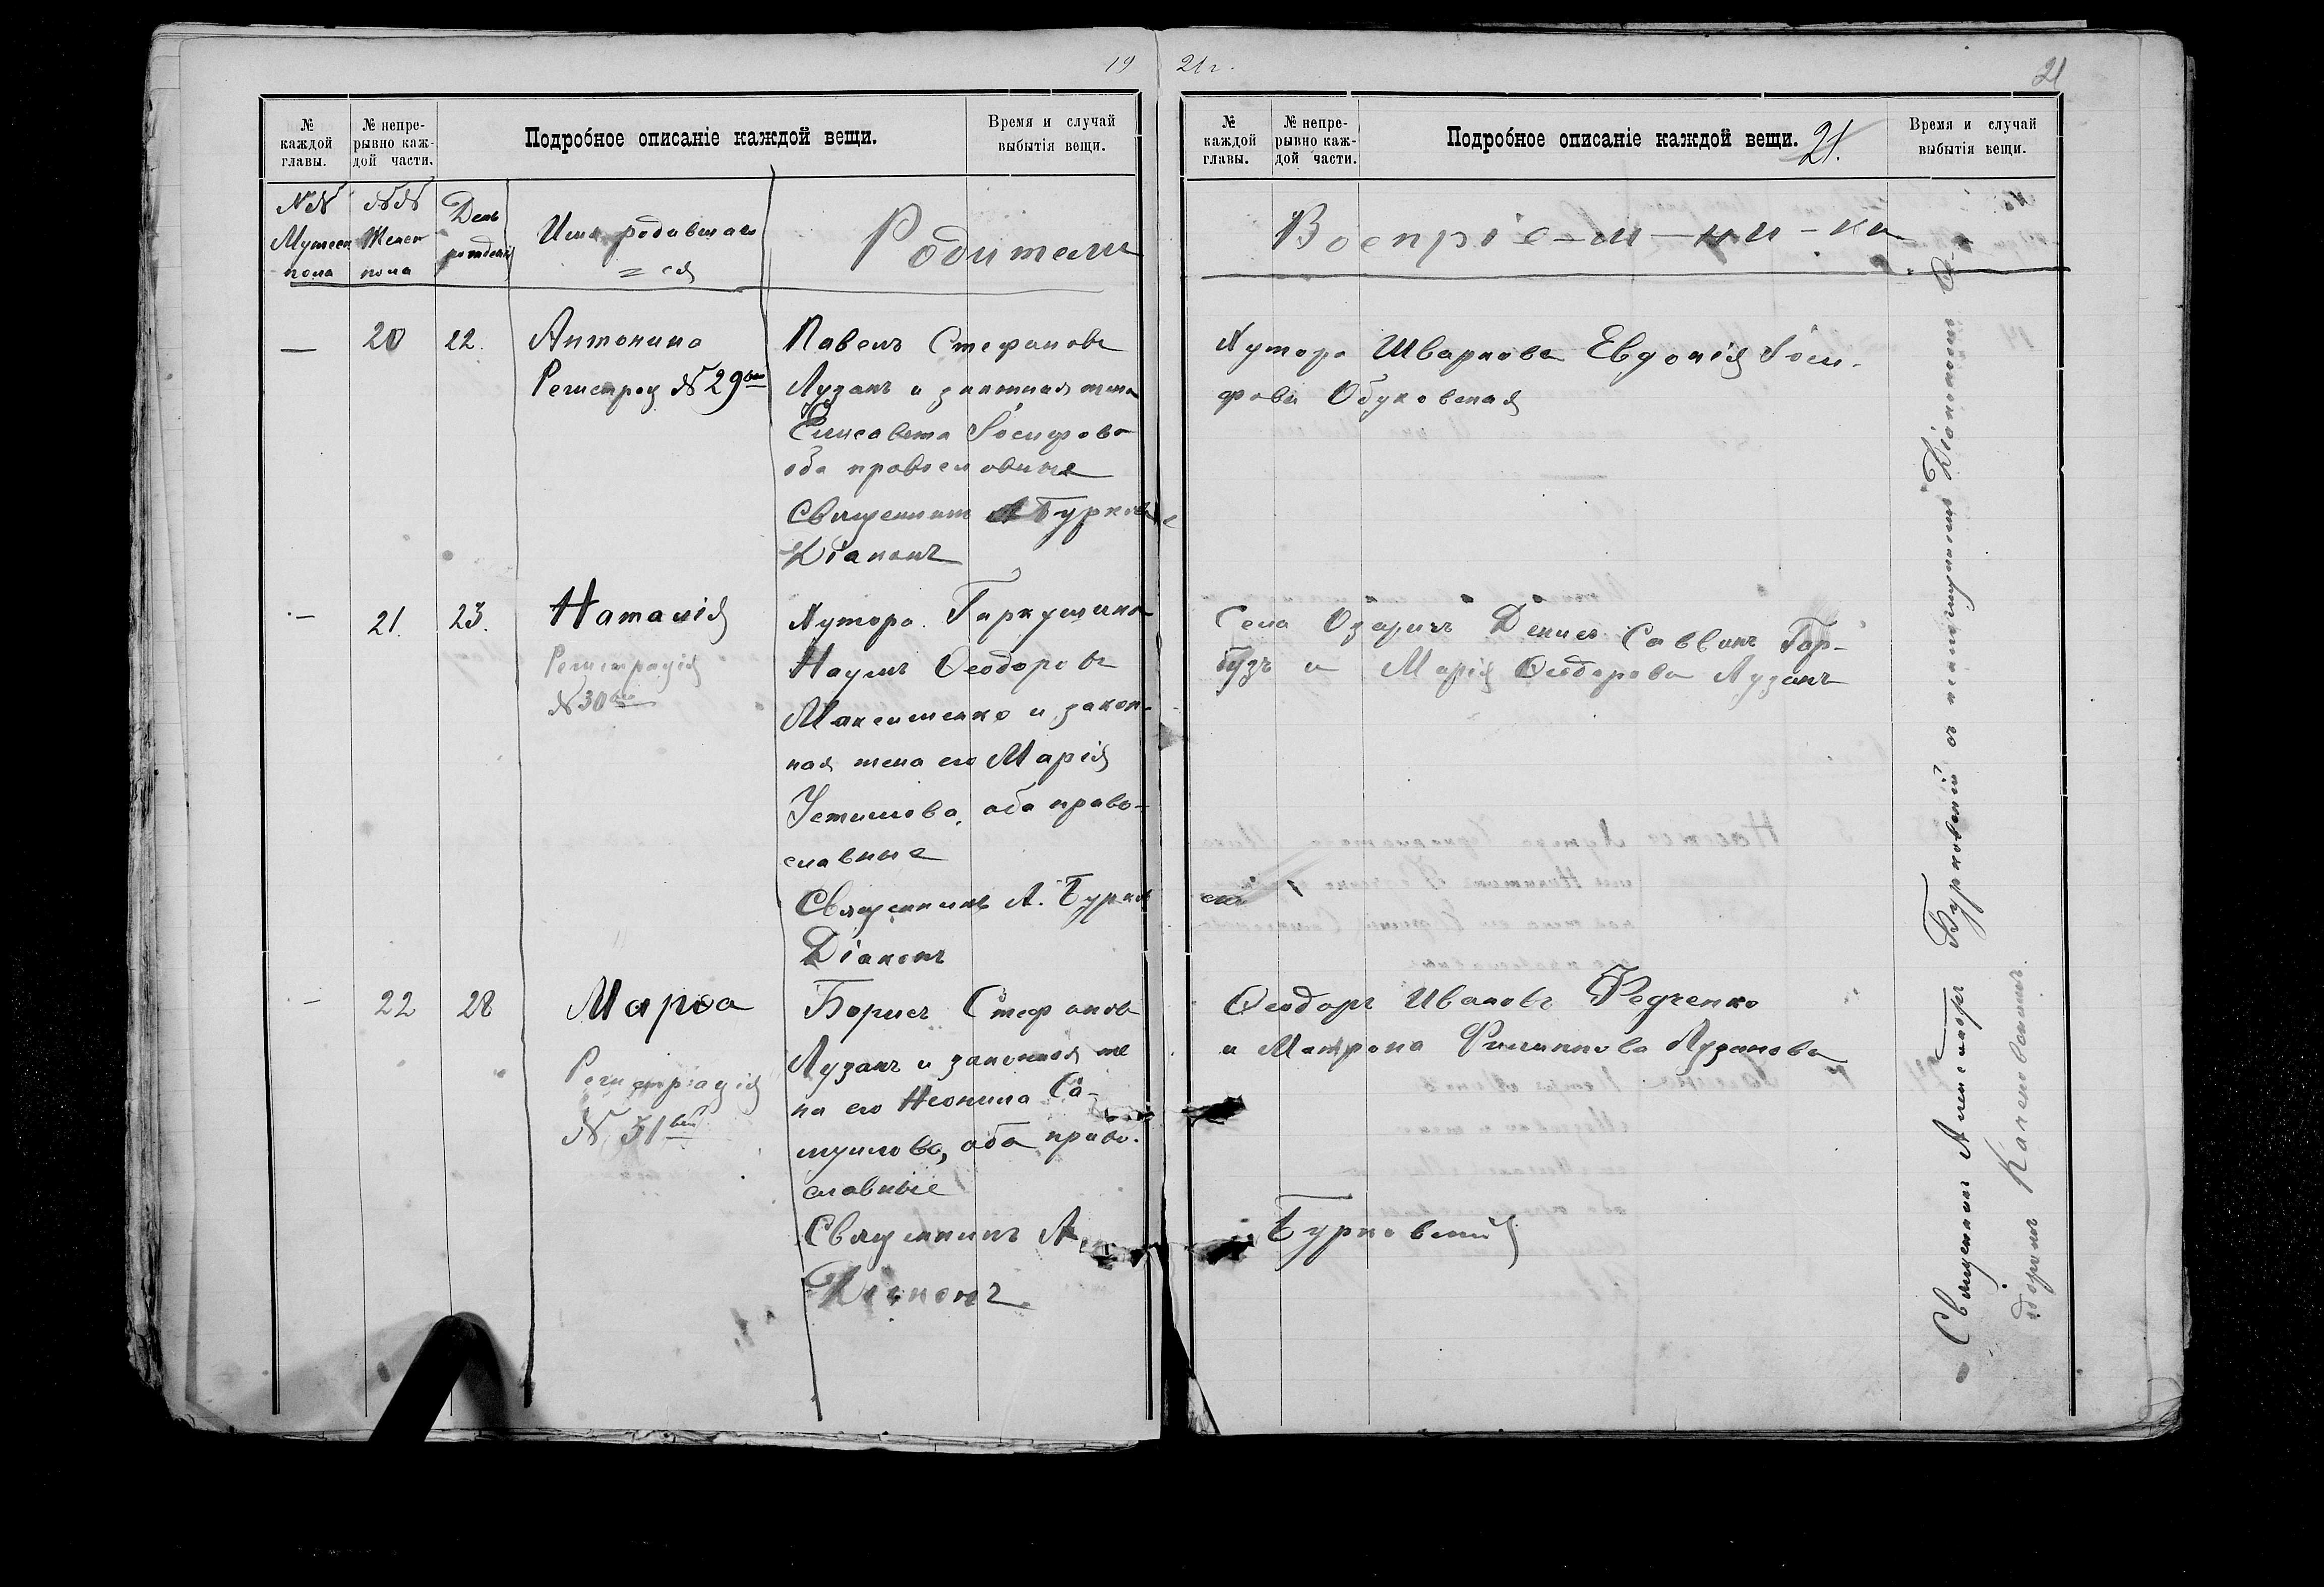 19
№ каждой главы.
№ непрерывно каждой части.
Подробное описаніе каждой вещи.
Время и случай выбытія вещи.
№№ Мужеск пола
№№ Женск пола
День рожденія
Имя родившаго=ся
Родители
— 20 22. Антонина
Регистрац № 29
Павелъ Стефановъ
Лузанъ и законная жена
Елисавета Іосифова
оба православные
Священникъ А Бурковс
Діаконъ
— 21. 23. Наталія
Регистрація
№ 30
Хутора
Наумъ Ѳеодоровъ
Максименко и закон-
ная жена его Марія
Устимова, оба право-
славные
Священникъ А. Бурков
Діаконъ
— 22 28 Марѳа
Регистрація
№ 31
Борисъ Стефановъ
Лузанъ и законная же
на его Неонила Са-
муилова, оба право-
славные
Священникъ А
Діаконъ
21 г.
21
№ каждой главы.
№ непрерывно каждой части.
Подробное описаніе каждой вещи. 21.
Время и случай выбытія вещи.
Воспріе-м-ни-ки
Хутора Шваркова Евдокія Іоси-
фова Обуховская
Села Озаричъ Денисъ Саввинъ Гар-
бузъ и Марія Ѳеодорова Лузанъ
скій
Ѳеодоръ Ивановъ Федченко
и Матрона Филиппова Лузанова
Бурковскій
Священникъ Александръ Бурковскій съ псаломщикомъ Діакономъ Ѳ-
одоромъ